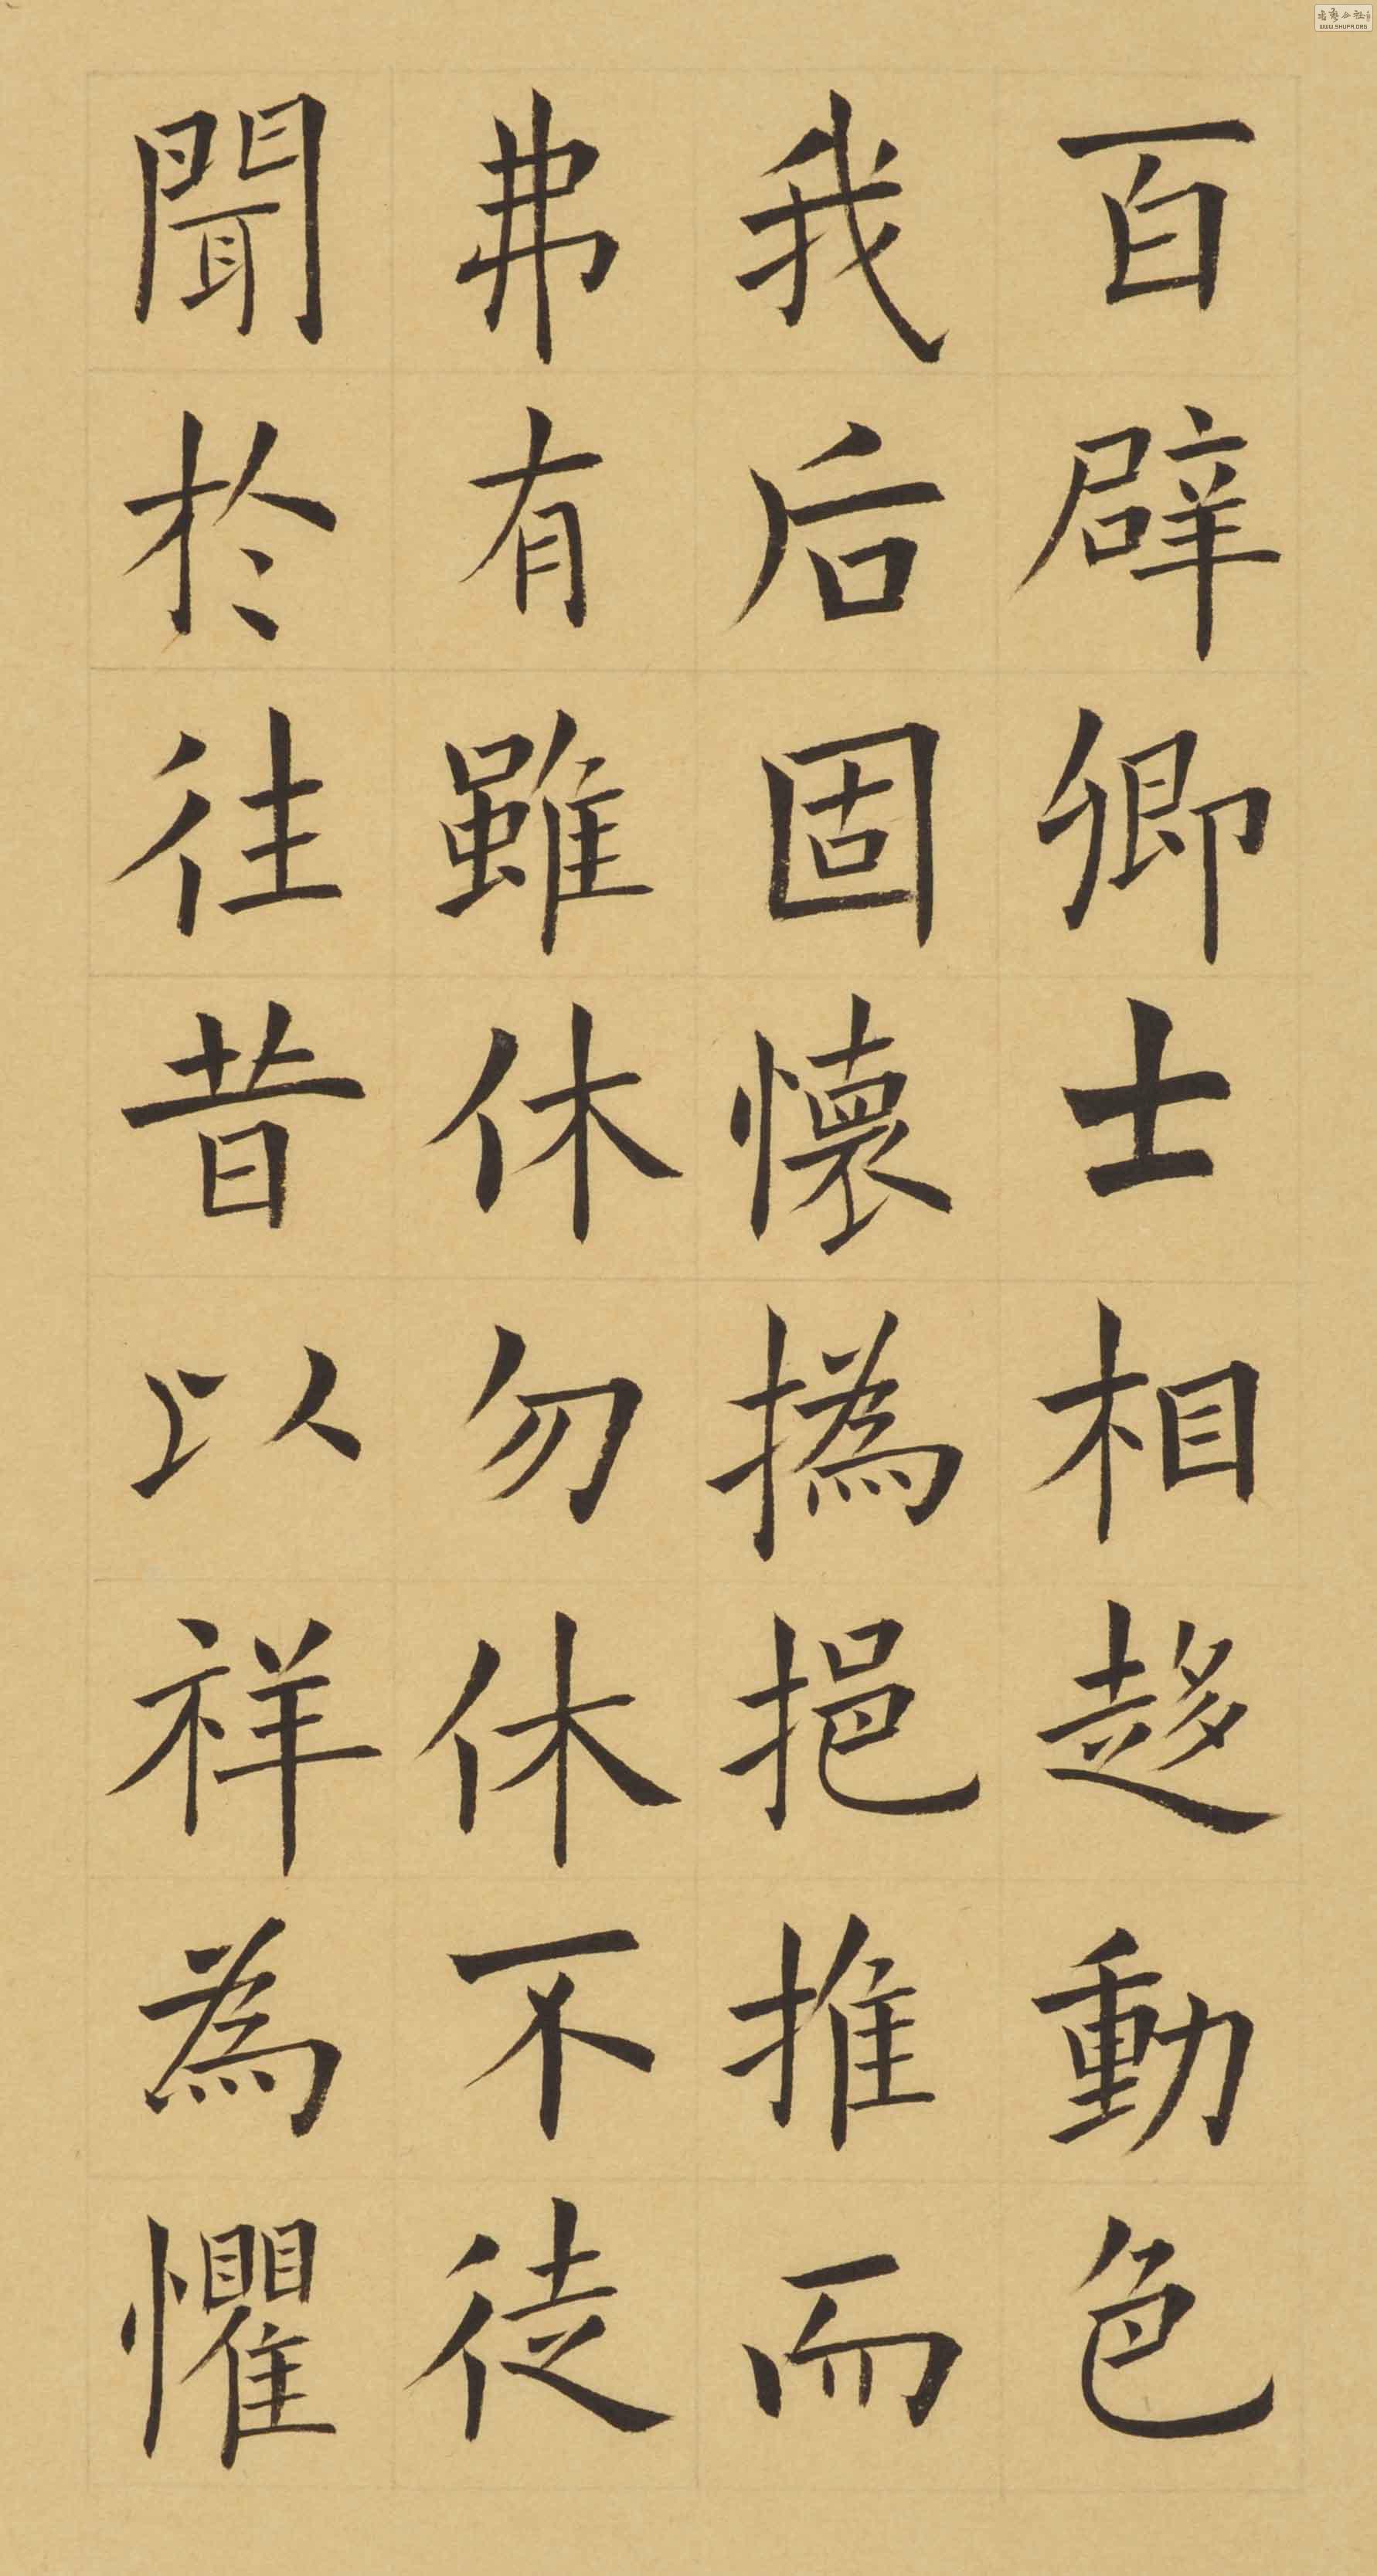 百辟卿士相趍動色
我后固懷撝挹推而
弗有雖休勿休不徒
聞於往昔以祥為懼
WWW.SHUFA.ORG